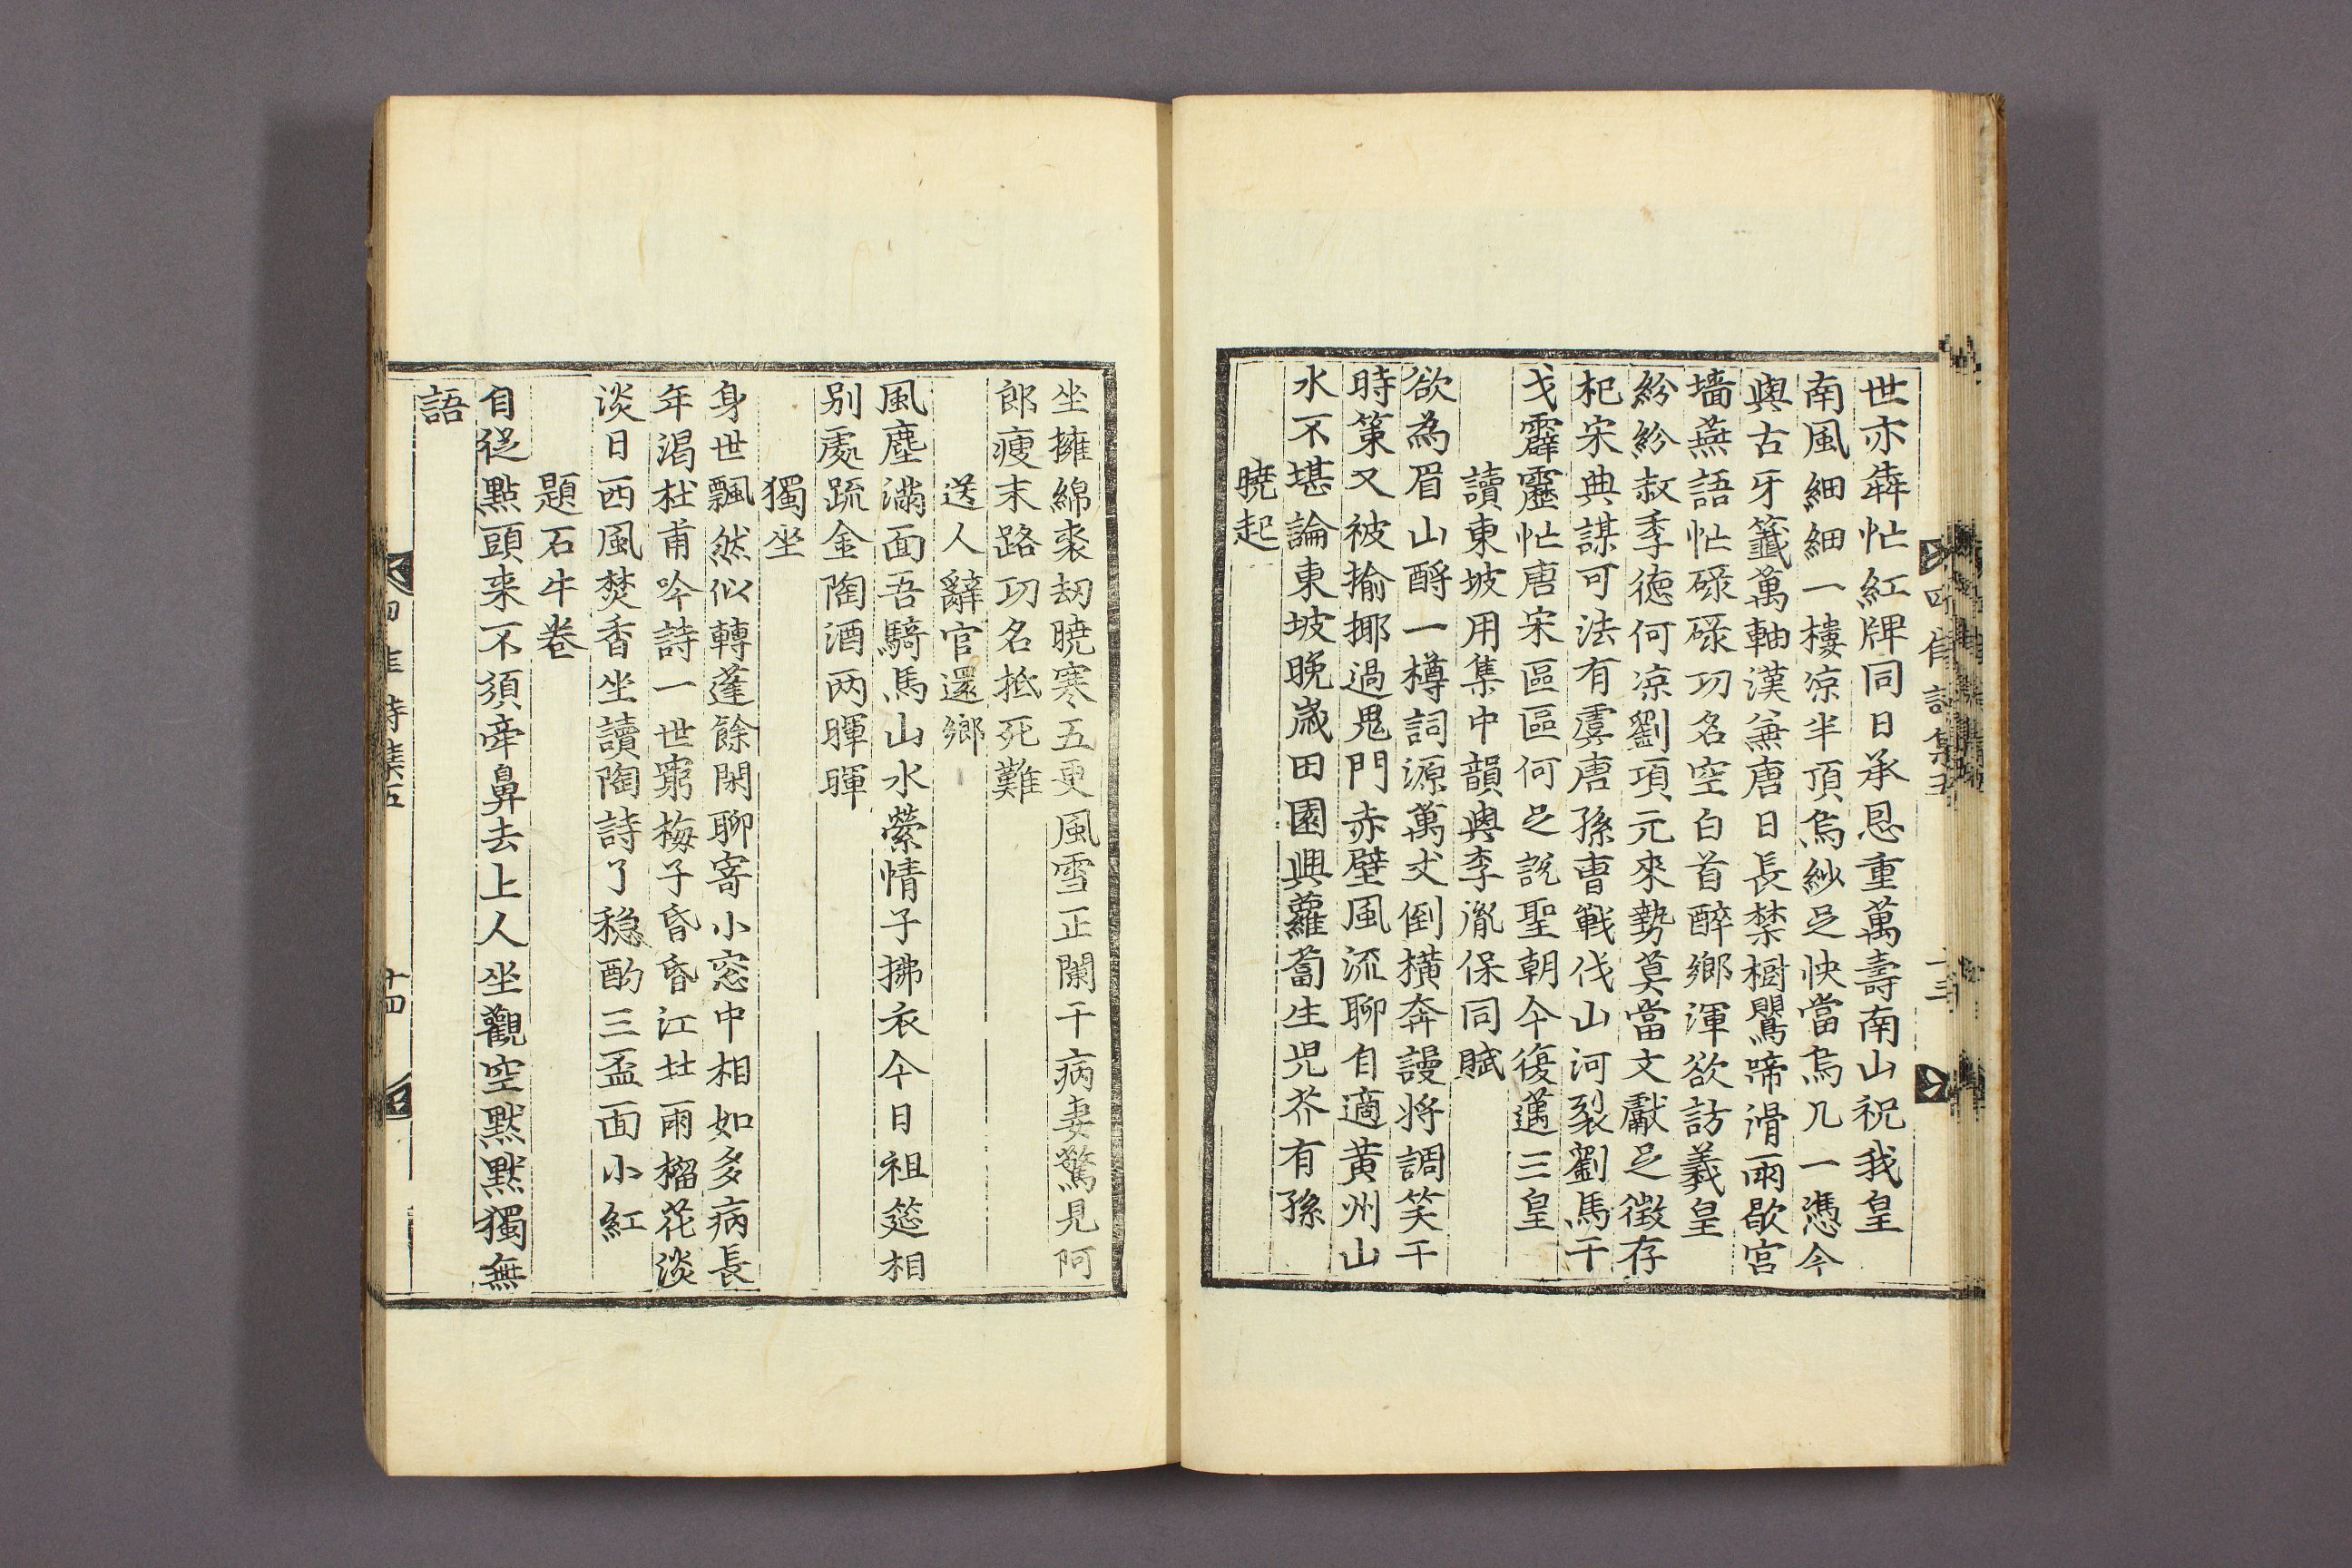 世亦犇忙紅牌同日承恩重萬壽南山祝我皇
南風細細一樓凉半頂烏紗足快當烏几一憑今
與古牙籤萬軸漢兼唐日長禁樹鸎啼滑雨歇宮
墻燕語忙碌碌功名空白首醉鄉渾欲訪羲皇
紛紛叔季德何凉劉項元來勢莫當文獻足徵存
杞宋典謀可法有虞唐孫曺戰伐山河裂劉馬干
戈霹靂忙唐宋區區何足說聖朝今復邁三皇
讀東坡用集中韻與李胤保同賦
欲為眉山酹一樽詞源萬丈倒橫奔謾將調笑干
時策又被揄揶過鬼門赤壁風流聊自適黃州山
水不堪論東坡晚歲田園興蘿蔔生児芥有孫
曉起
坐擁綿裘刼曉寒五更風雪正闌干病妻驚見阿
郎瘦末路功名抵死難
送人辭官還鄉
風塵滿面吾騎馬山水縈情子拂衣今日祖筵相
別處䟽金陶酒两暉暉
獨坐
身世飄然似轉蓬餘閑聊寄小窓中相如多病長
年渴杜甫吟詩一世窮梅子昏昏江社雨榴花淡
淡日西風焚香坐讀陶詩了穏酌三盃面小紅
題石牛卷
自從點頭来不須牽鼻去上人坐觀空默默獨無
語
四佳詩集五
十四